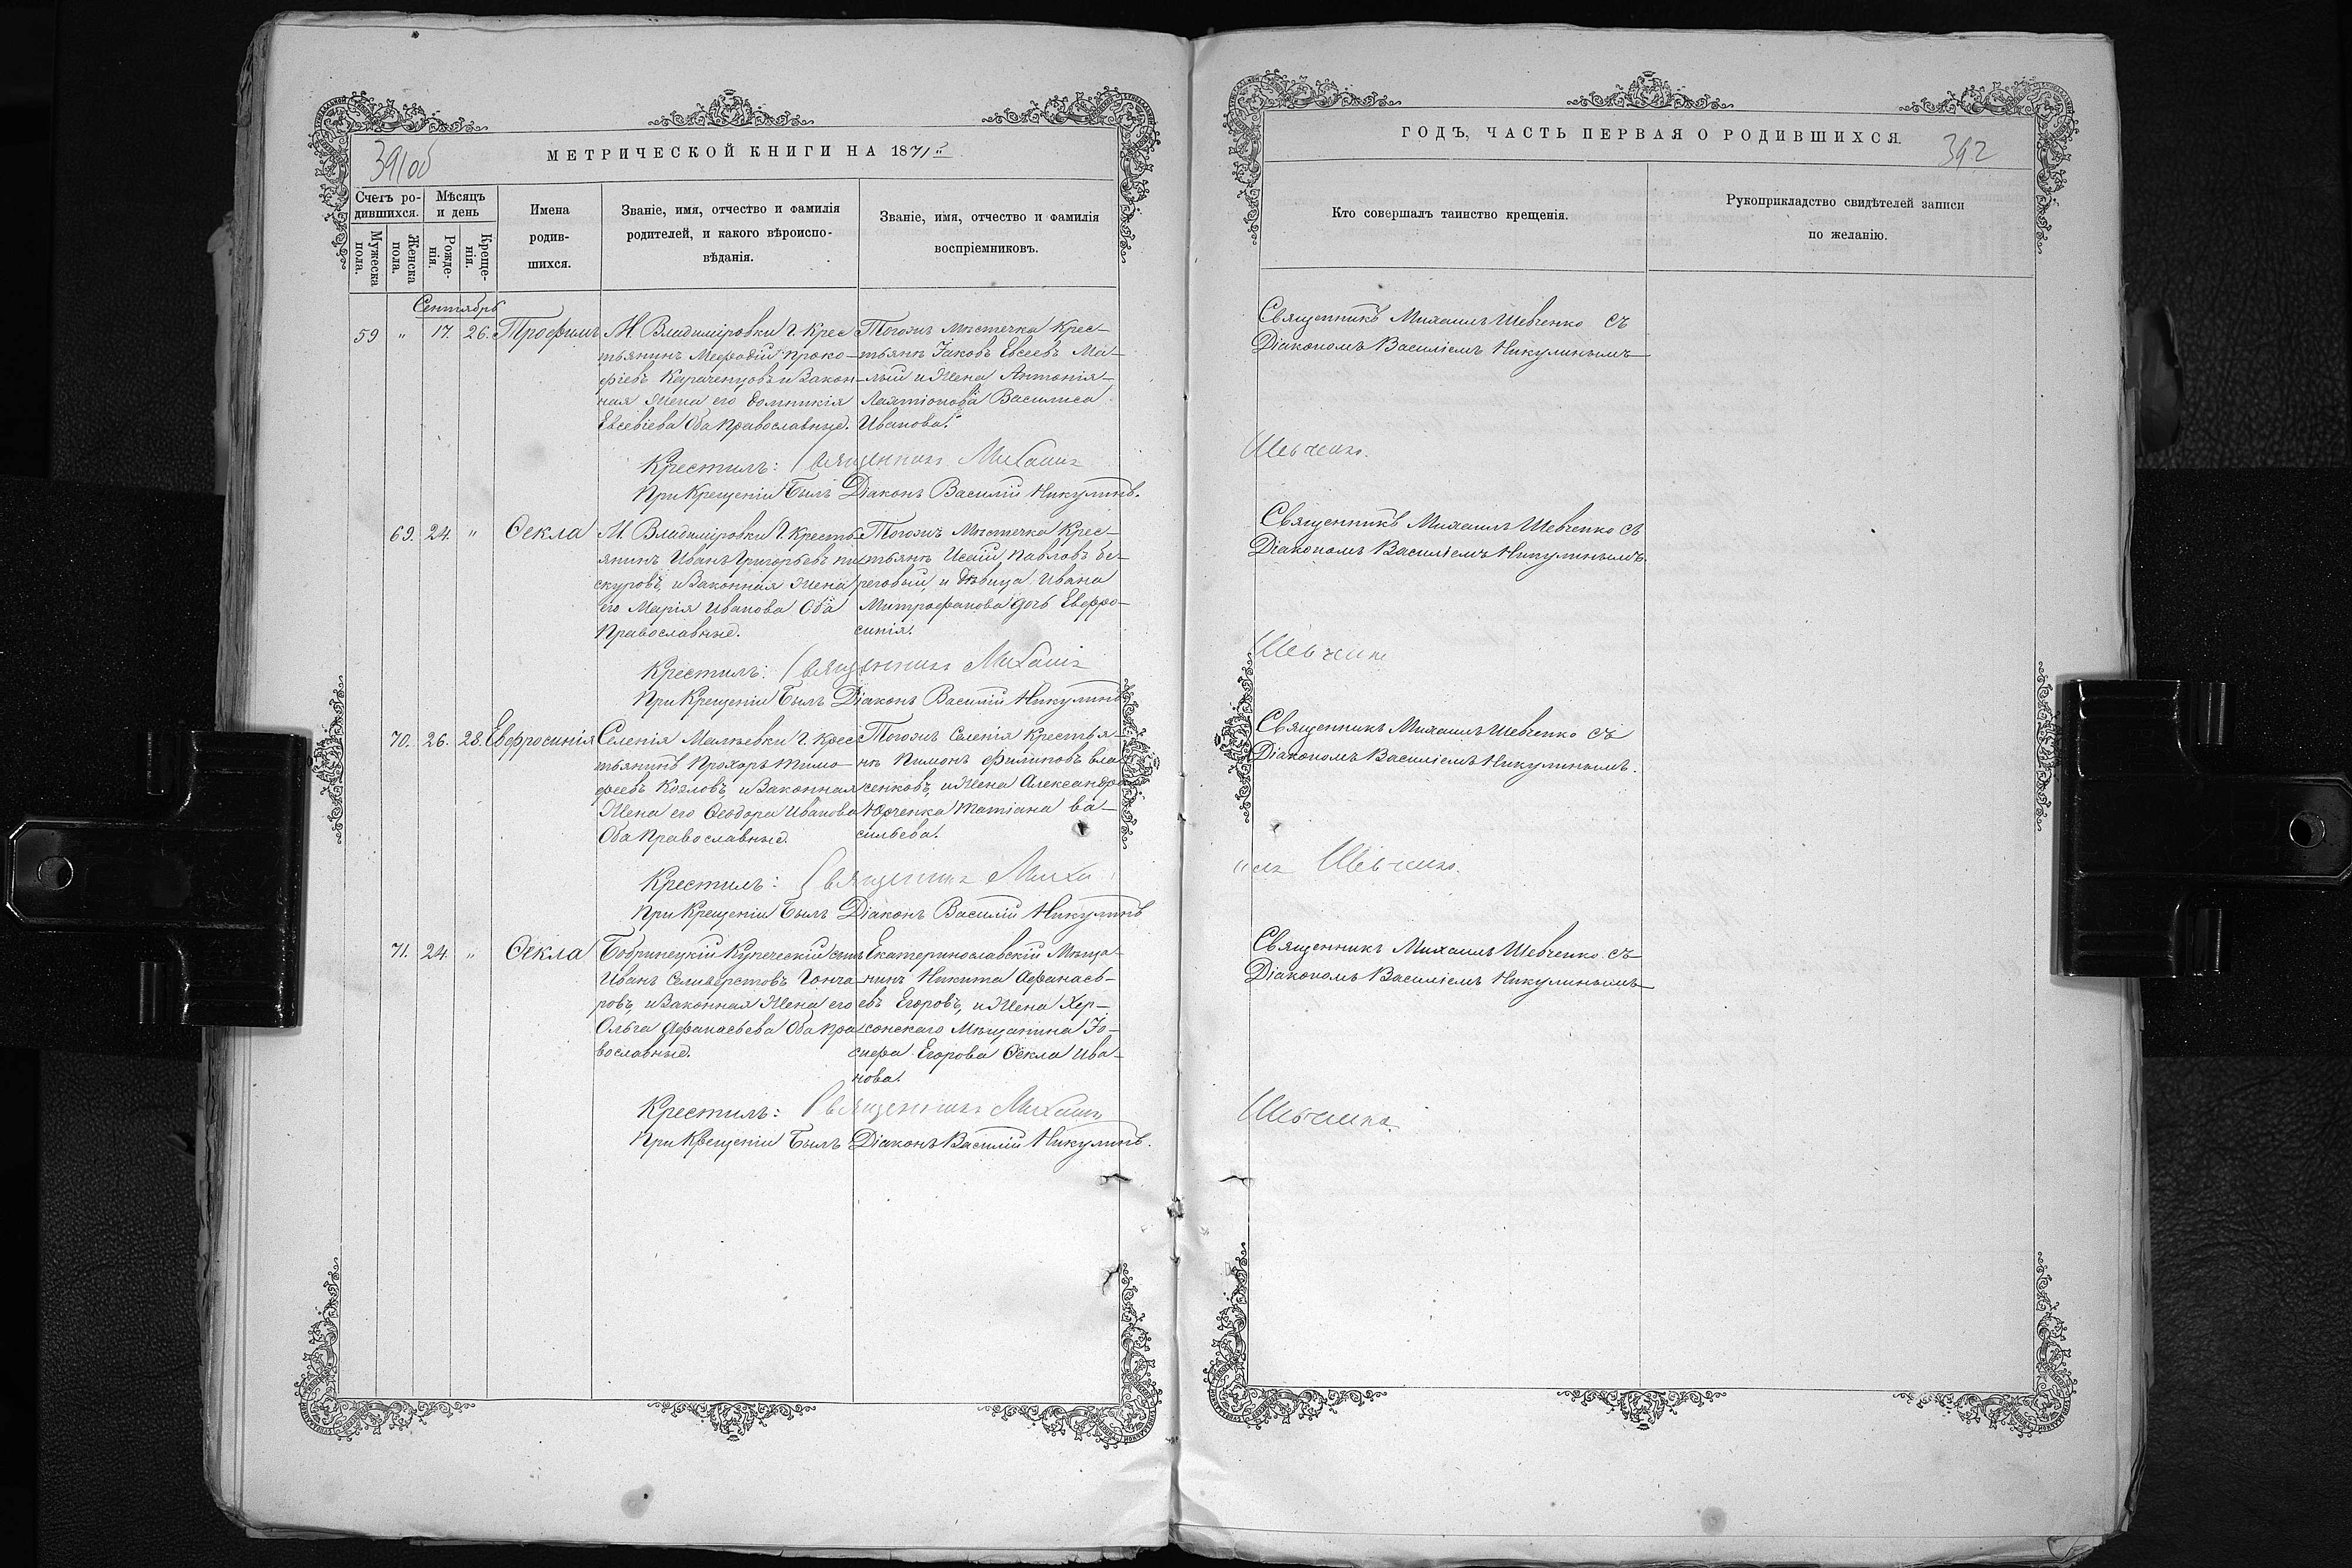 391об
МЕТРИЧЕСКОЙ КНИГИ НА 1871й
Счетъ ро-
дившихся.
Мѣсяцъ
и день
Мужеска
пола.
Женска
пола.
Рожде-
нія.
Креще-
нія.
Имена
родив-
шихся.
Званіе, имя, отчество и фамилія
родителей, и какого вѣроиспо-
вѣданія.
Званіе, имя, отчество и фамилія
воспріемниковъ.
Сентябрь
59 " 17. 26. Трофимъ
М. Владиміровки Г. Крес
тьянинъ Меѳодій Проко-
фіевъ Карачепцовъ и Закон-
ная Жена его Домникія
Евсевіева Оба Православные.
Тогожъ Мѣстечка Крес-
тьянъ Іаковъ Евсеевъ Ма-
лый и Жена Антонія
Василиса
Иванова.
Крестилъ: Священникъ Михаилъ
При Крещеніи Былъ Діаконъ Василій Никулинъ.
69. 24. " Ѳекла
М. Владиміровки Г. Кресть
янинъ Иванъ Григорьевъ Пи
скуровъ, и Законная Жена
его Марія Иванова Оба
Православные.
Тогожъ Мѣстечка Крес-
тьянъ Исаій Павловъ Бе-
реговый, и Дѣвица Ивана
Митрофанова дочь Евфро-
синія.
Крестилъ: Священникъ Михаилъ
При Крещеніи Былъ Діаконъ Василій Никулинъ
70. 26. 28. Евфросинія
Селенія Малѣевки Г. Крес
тьянинъ Прохоръ Тимо
феевъ Козловъ, и Законная
Жена его Ѳеодора Иванова
Оба Православные.
Тогожъ Селенія Крестья-
нъ Пимонъ Филиповъ Вла
сенковъ, и Жена Александра
Юрченка Татіана Ва-
сильева.
Крестилъ: Священникъ Миха
При Крещеніи Былъ Діаконъ Василій Никулинъ
71. 24. " Ѳекла
Бобринецкій Купеческій сынъ
Иванъ Селиверстовъ Гонча
ровъ, и Законная Жена его
Ольга Афанасьева Оба Пра
вославные.
Екатеринославскій Мѣща-
нинъ Никита Афанась-
евъ Егоровъ, и Жена Хер-
сонскаго Мѣщанина Іо-
сифа Егорова Ѳекла Ива-
нова.
Крестилъ: Священникъ Михаилъ
При Крещеніи Былъ Діаконъ Василій Никулинъ.
ГОДЪ, ЧАСТЬ ПЕРВАЯ О РОДИВШИХСЯ.
392
Кто совершалъ таинство крещенія.
Рукоприкладство свидѣтелей записи
по желанію.
Священникъ Михаилъ Шевченко съ
Діакономъ Василіемъ Никулинымъ
Шевченко.
Священникъ Михаилъ Шевченко съ
Діакономъ Василіемъ Никулинымъ.
Шевченко
Священникъ Михаилъ Шевченко съ
Діакономъ Василіемъ Никулинымъ.
илъ Шевченко.
Священникъ Михаилъ Шевченко. съ
Діакономъ Василіемъ Никулинымъ
Шевченко.